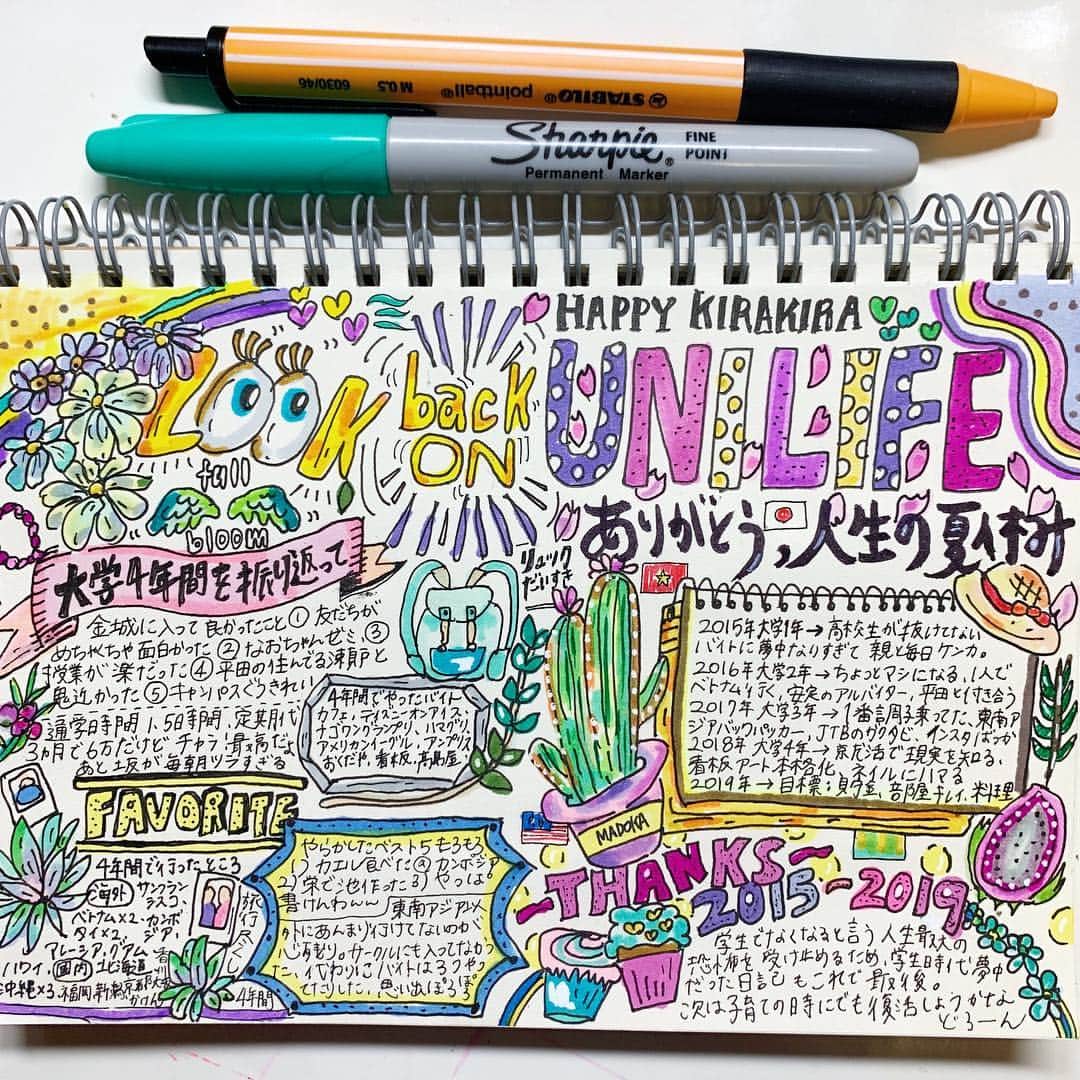 STABILO® pointball® M 0.5 6030/46
Sharpie® FINE
POINT
Permanent Marker
HAPPY KIRAKIRA
LOOK back
ON
UNI LIFE
full
bloom
ありがとうっ人生の夏休み
大学4年間を振り返って
リュック
だいすき
金城に入って良かったこと① 友だちが
めちゃくちゃ面白かった ② なおちゃんゼミ ③
授業が楽だった ④ 平田の住んでる
近かった ⑤ キャンパスぐうきれい
通学時間 1.5時間、定期代
3ヵ月で6万だけど、チャラ 最高だよ
あと上坂が毎朝ツラすぎる
4年間でやったバイト
カフェ、ディズニーオンアイス、
ナゴワングランプリ、ハマグリ
アメリカンイーグル、アンプリス
おくだや、看板、髙島屋
2015年大学1年→高校生が抜けてない
バイトに夢中なりすぎて 親と毎日ケンカ。
2016年大学2年→ちょっとマシになる、1人で
ベトナム行く、安定のアルバイター、平田と付き合う
2017年 大学3年→1番調子乗ってた、東南ア
ジアバックパッカー、JTBのガクタビ、インスタばっか
2018年 大学4年→就活で現実を知る、
看板アート本格化、ネイルにハマる
2019年→目標:貯金、部屋キレイ、料理
MADOKA
FAVORITE
4年間で行ったところ
海外 サンフラン
シスコ、
ベトナム×2、カンボ
ジア、
タイ×2、
マレーシア、グアム
ハワイ、国内 北海道
沖縄×3 福岡 新潟 東京 京都 大阪
4年間
やらかしたベスト5 もろもろ
1) カエル食べた@カンボジア
2) 栄で池作った 3) やっぱ
書けんわんん 東南アジア
にあんまり行けてないのが
心残り。サークルにも入ってなかっ
た、代わりにバイトは3つやっ
てたりした、思い出ぽろぽろ
THANKS
2015〜2019
学生でなくなると言う 人生最大の
恐怖を受け止めるため、学生時代夢中
だった日記 もこれで 最後。
次は子育ての時にでも復活しようかなぁ
どろーん